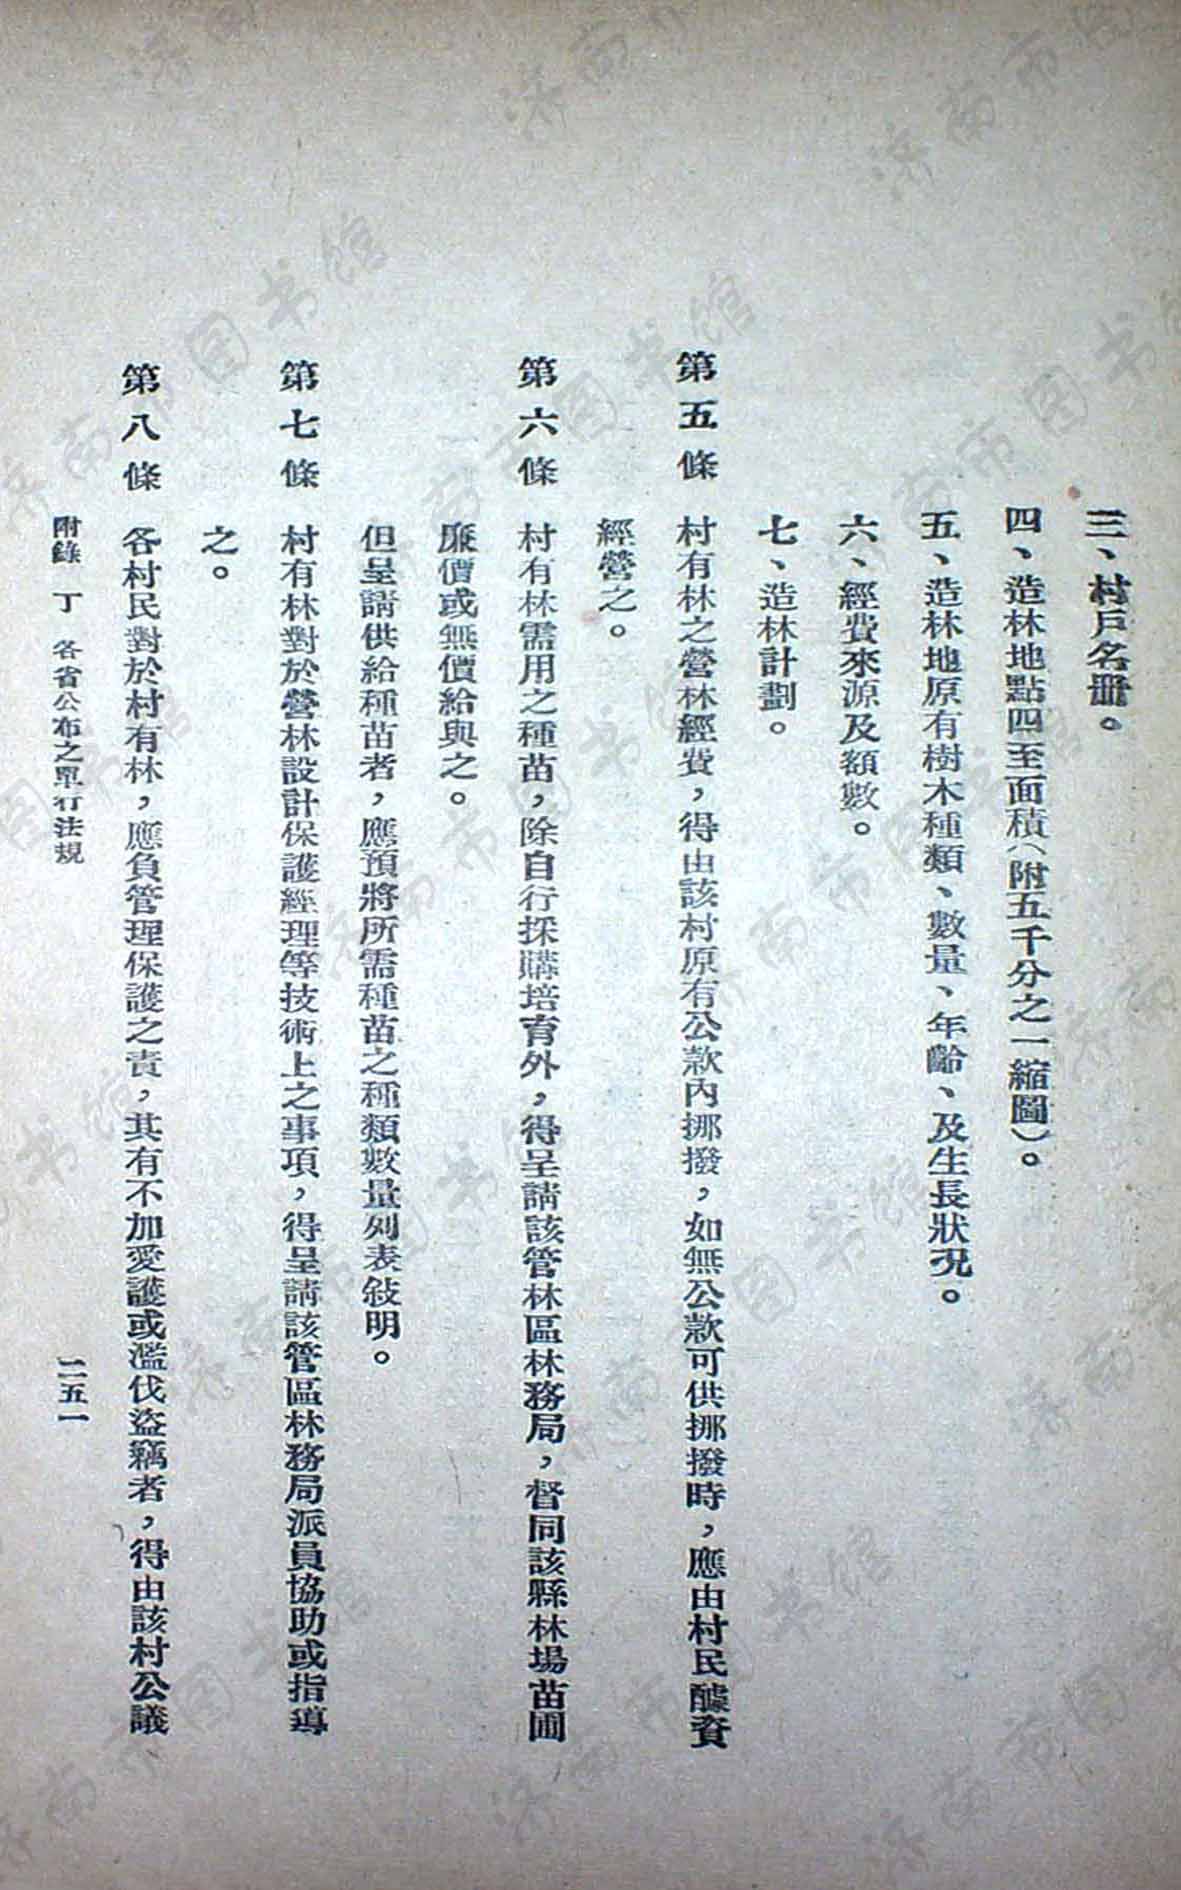 三、村戶名册。
四、造林地點四至面積（附五千分之一縮圖）。
五、造林地原有樹木種類、數量、年齡、及生長狀況。
六、經費來源及額數。
七、造林計劃。
第五條　村有林之營林經費，得由該村原有公款內挪撥，如無公款可供挪撥時，應由村民醵資
經營之。
第六條　村有林需用之種苗，除自行採購培育外，得呈請該管林區林務局，督同該縣林場苗圃
廉價或無價給與之。
但呈請供給種苗者，應預將所需種苗之種類數量列表敍明。
第七條　村有林對於營林設計保護經理等技術上之事項，得呈請該管區林務局派員協助或指導
之。
第八條　各村民對於村有林，應負管理保護之責，其有不加愛護或濫伐盜竊者，得由該村公議
附錄　丁　各省公布之單行法規　二五一
济南市图书馆